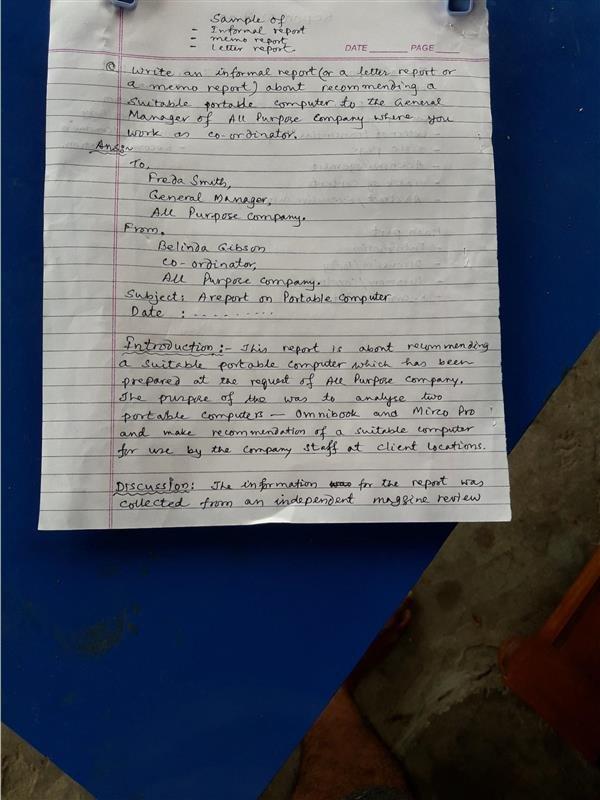 Sample of
- Informal report
- memo report
- letter report
DATE ______ PAGE ____
Q Write an informal report (or a letter report or
a memo report) about recommending a
suitable portable computer to the General
Manager of All Purpose Company where you
work as co-ordinator.
Ans:-
To,
Freda Smith,
General Manager,
All Purpose company.
From.
Belinda Gibson
co-ordinator,
All Purpose company.
Subject: A report on Portable computer
Date : ..........
Introduction:- This report is about recommending
a suitable portable computer which has been
prepared at the request of All Purpose company.
The purpose of the was to analyse two
portable computers - Omnibook and Mirco Pro
and make recommendation of a suitable computer
for use by the company staff at client locations.
Discussion: The information was for the report was
collected from an independent magzine review